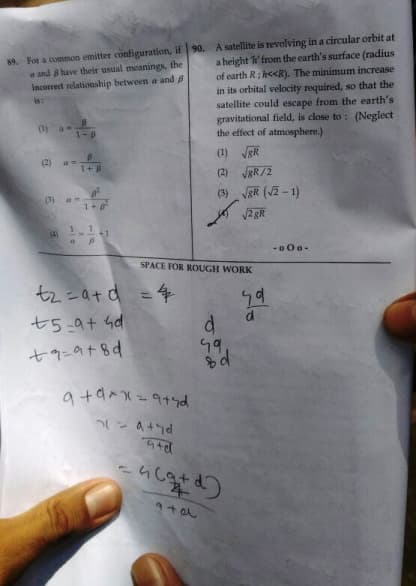 89. For a common emitter configuration, if
α and β have their usual meanings, the
incorrect relationship between α and β
is :
(1) α = β / 1 - β
(2) α = β / 1 + β
(3) α = β² / 1 + β²
(4) 1/α = 1/β + 1
90. A satellite is revolving in a circular orbit at
a height 'h' from the earth's surface (radius
of earth R ; h<<R). The minimum increase
in its orbital velocity required, so that the
satellite could escape from the earth's
gravitational field, is close to : (Neglect
the effect of atmosphere.)
(1) √gR
(2) √gR/2
(3) √gR (√2 - 1)
(4) √2gR
- o O o -
SPACE FOR ROUGH WORK
t2 = a + d = 4
t5 = a + 4d
t9 = a + 8d
4d
d
d
4d
8d
a + d × x = a + 4d
x = a + 4d
a + d
= 4(a/4 + d)
a + d